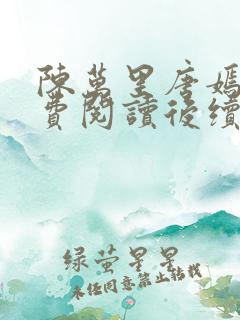 陳萬里唐嫣
費閱讀後續
綠螢星星
未经同意禁止转载